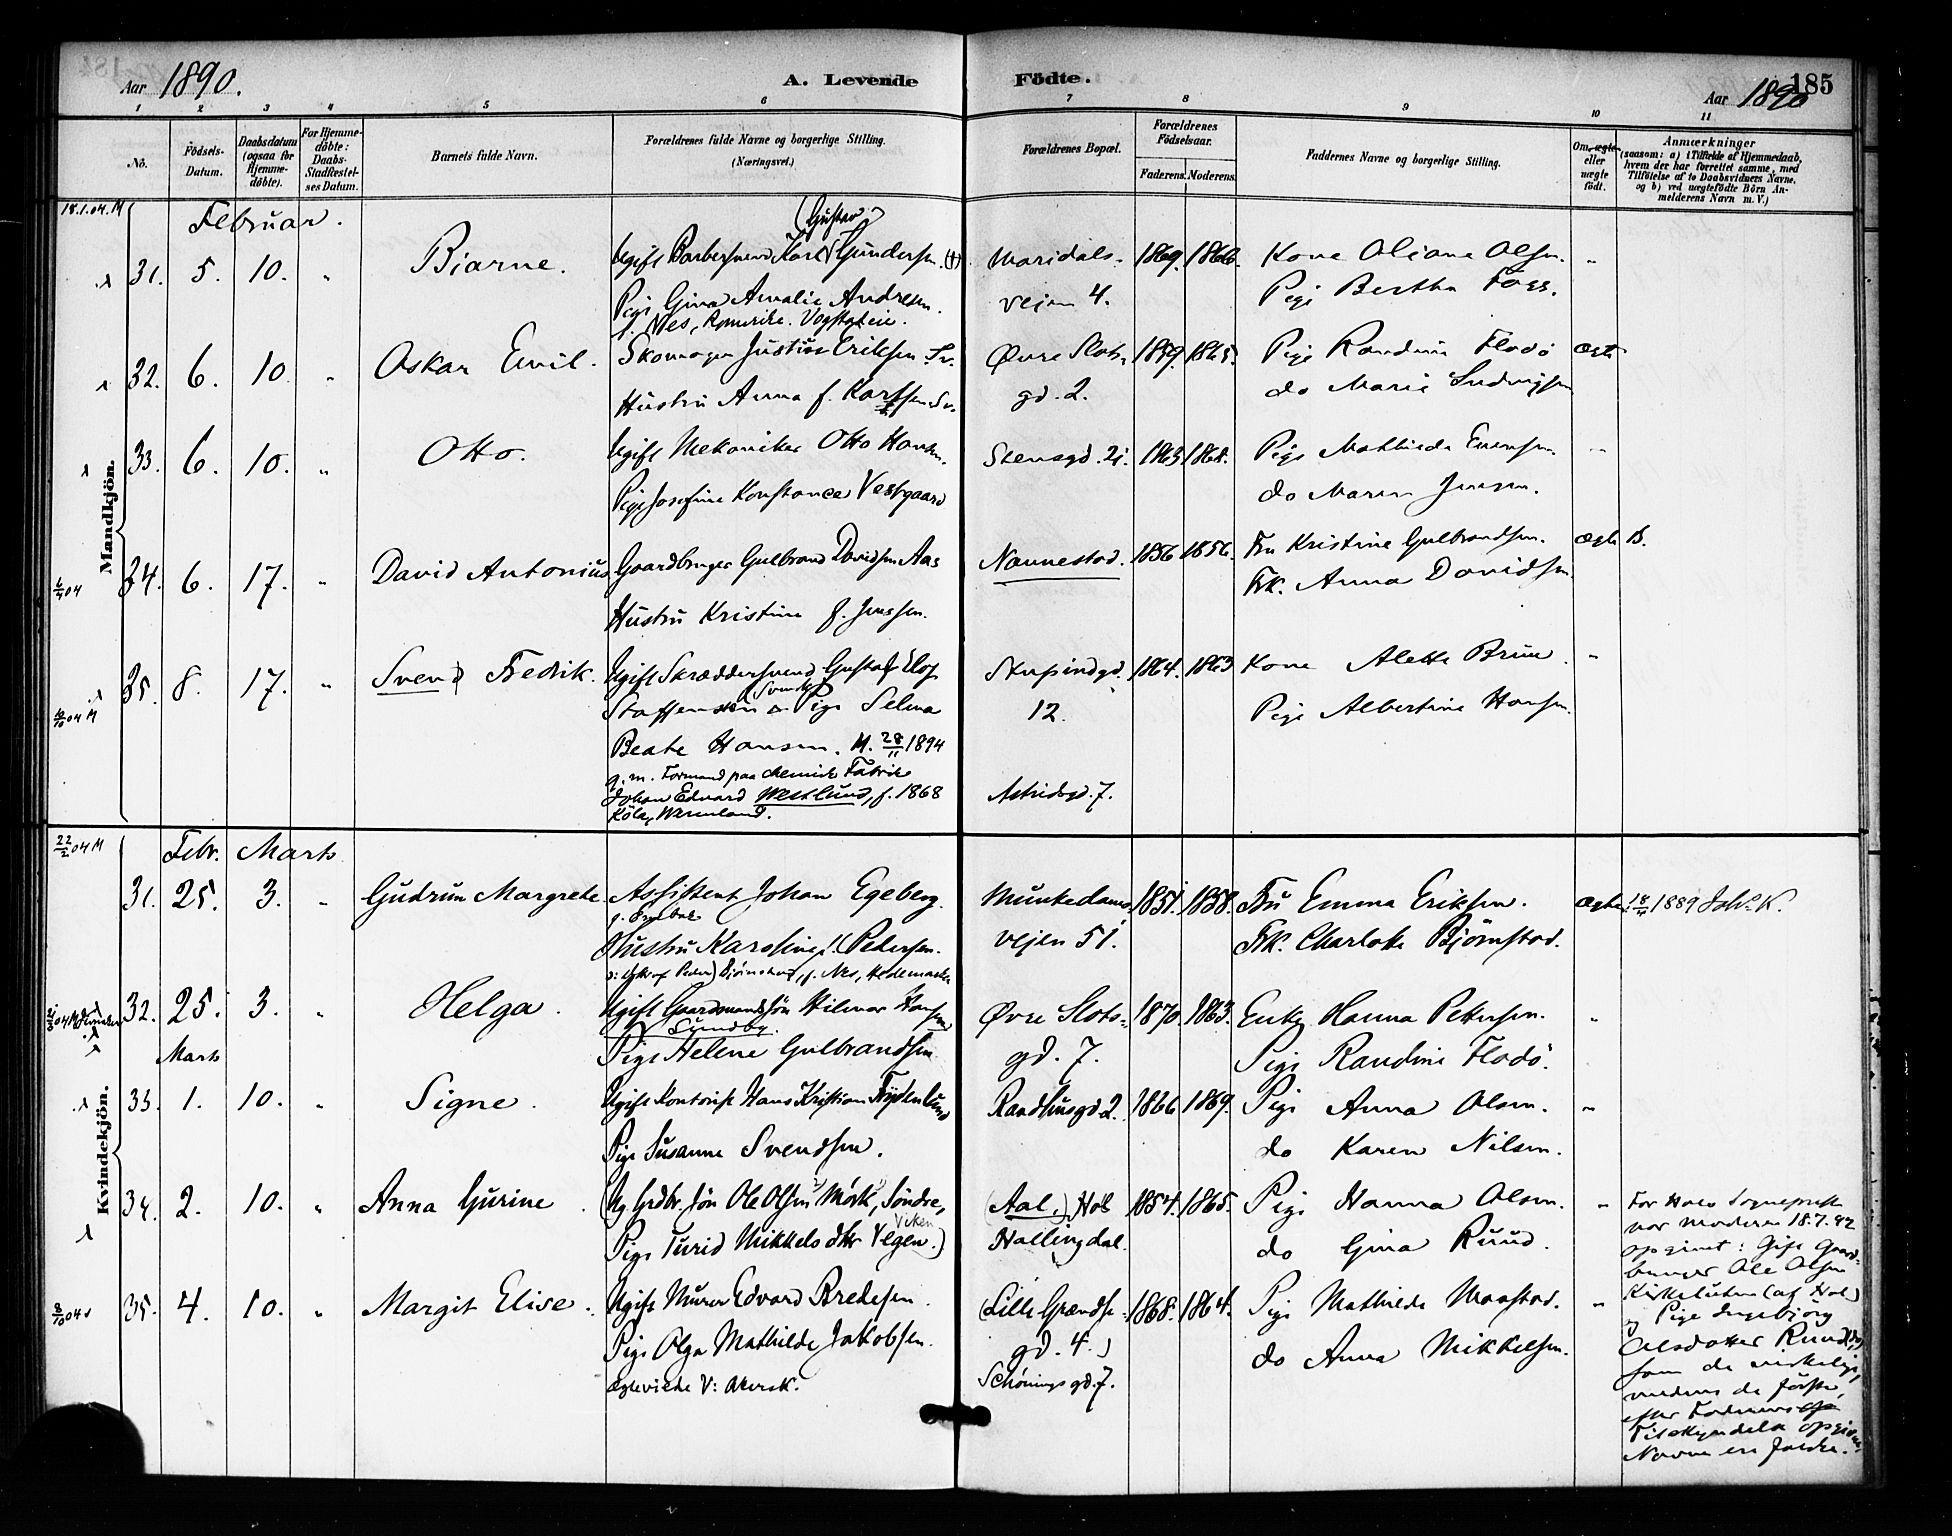 Aar 1890.
A. Levende
Födte.
185
Aar 1890
1 2 3 4 5 6 7 8 9 10 11
Nô.
Födsels-
Datum.
Daabsdatum
(ogsaa for
Hjemme-
döbte).
For Hjemme-
döbte:
Daabs-
Stadfæstel-
ses Datum.
Barnets fulde Navn.
Forældrenes fulde Navne og borgerlige Stilling.
(Næringsvei.)
Forældrenes Bopæl.
Forældrenes
Födselsaar.
Faderens. Moderens.
Faddernes Navne og borgerlige Stilling.
Om ægte
eller
uægte
födt.
Anmærkninger
(saasom: a) i Tilfælde af Hjemmedaab,
hvem der har forrettet samme, med
Tilföielse af to Daabsvidners Navne,
og b) ved uægtefödte Börn An-
melderens Navn m. V.)
18.1.04. M
Februar.
Mandkjön.
31. 5. 10. „ Biarne.
(Gustav)
Ugift Barbersvend Karl Gundersen.
Pige Gina Amalie Andresen.
f. Nes, Romerike.
Maridals-
veien 4.
1869. 1866.
Kone Oliane Olsen.
Pige Bertha Foss.
„
32. 6. 10. „ Oskar Emil.
Skomager Justus Eriksen Sv.
Hustru Anna f. Karlsen Sv.
Øvre Slots-
gd. 2.
1859. 1865.
Pige Randine Flodö
do Marie Ludvigsen
ægte
33. 6. 10. „ Otto.
Ugift Mekaniker Otto Hansen.
Pige Josefine Konstance Vestgaard
Stensgd. 21.
1863 1868.
Pige Mathilde Evensen.
do Maren Jensen.
„
6/4 04
34. 6. 17. „ David Antonius
Gaardbruger Gulbrand Davidsen Aas
Hustru Kristine f. Jensen.
Nannestad.
1856 1856.
Fru Kristine Gulbrandsen.
Frk. Anna Davidsen.
ægte B.
10/10 04 M
35. 8. 17. „ Svend Fredrik.
Ugift Skræddersvend Gustaf Elof
Staffenssen Svensk Pige Selma
Beate Hansen. M. 28/11 1894
g. m. Formand paa chemisk Fabrik
Johan Edvard Westlund, f. 1868
Köla, Wermland.
Stupindgd.
12.
Astridsgd. 7.
1864. 1863
Kone Alette Bruu
Pige Albertine Hansen.
„
22/2 04 M
Febr. Marts
Kvindekjön.
31. 25. 3. „ Gudrun Margrethe.
Assistent Johan Egeberg.
Hustru Karoline f. Petersen.
Bjørnstad, f. Nes, Hedemarken
Munkedams-
veien 51.
1851. 1858.
Fru Emma Eriksen.
Frk. Charlotte Björnstad.
ægte 18/4 1889 Joh. K.
32. 25. 3. „ Helga.
Ugift Gaardmandssön Hilmar Hansen
Sundby.
Pige Helene Gulbrandsen
Øvre Slots-
gd. 7.
1870. 1863.
Enke Hanna Pettersen.
Pige Randine Flodö.
„
Marts
33. 1. 10. „ Signe.
Ugift Kontorist Hans Kristian Frydenlund
Pige Susanne Svendsen.
Raadhusgd. 2.
1866 1869.
Pige Anna Olsen.
do Karen Nilsen.
„
34. 2. 10. „ Anna Gurine.
(Ug. Grdbr. Sön Ole Olsen Mørk, Søndre,
Viken
Pige Turid Mikkelsdtr Vegen.)
(Aal.) Hol
Hallingdal.
1854. 1865.
Pige Hanna Olsen.
do Gina Ruud.
„
For Hols Sognepræst
har moderen 18.7.92
opgivet: Gift Gaard-
bruger Ole Olsen
Kirkeluten (af Hol)
og Pige Ingebjörg
Olsdatter Ruud(do)
som de virkelige,
medens de første,
efter Faderens
Tilskyndelse opgivne
Navne er falske.
8/10 04
35. 4. 10. „ Margit Elise.
Ugift Murer Edvard Bredesen.
Pige Olga Mathilde Jakobsen.
Ægteviede V: Akersk.
(Lille Grændse-
gd. 4.)
Schønings gd. 7.
1868. 1864.
Pige Mathilde Moastad.
do Anna Mikkelsen.
„